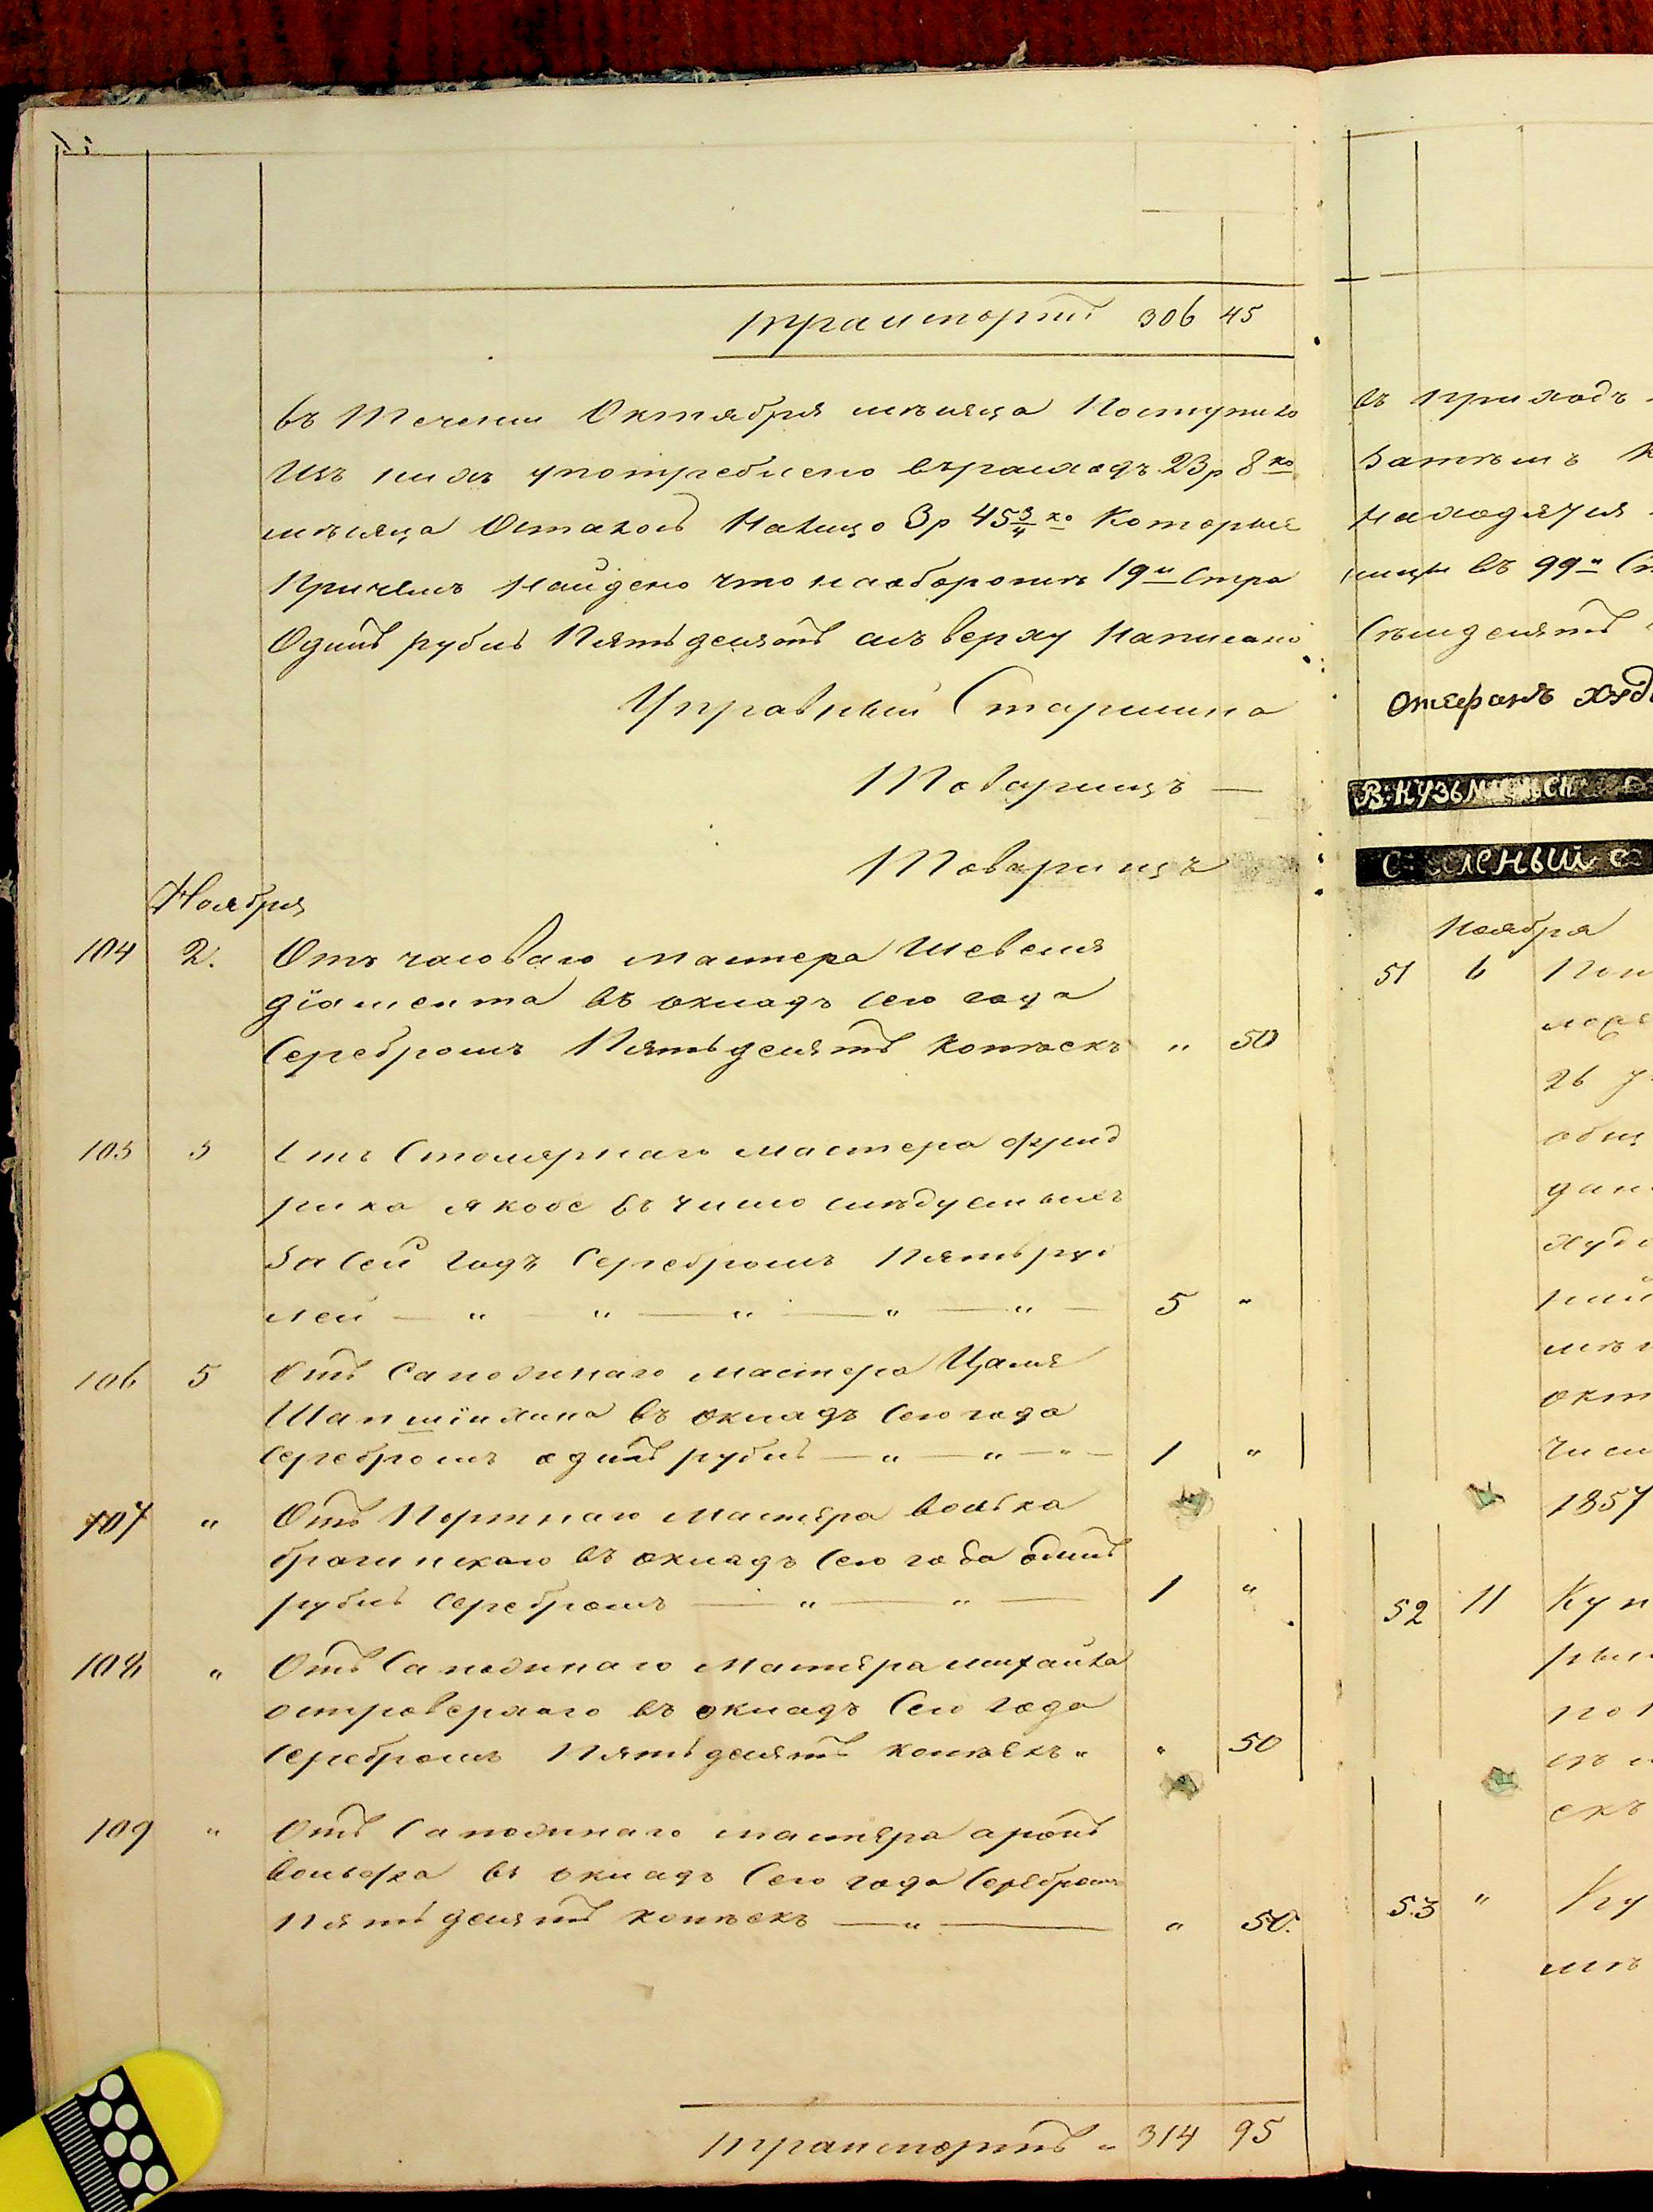 транспортъ 306 45
въ Течении Октября мѣсяца Поступило
Изъ нихъ употреблено въ расходъ 23 р 8 ко
мѣсяца Остаюсь Налицо 3 р 45 3/4 ко Которые
Причемъ Найдено что на оборотѣ 19й Стра
Одинъ рубль Пятьдесятъ а въ верху Написано
Управный Старшина
Товарищъ —
Товарищъ
Ноября
104 2. Отъ часоваго мастера Шевеля
діамента въ окладъ сего года
Серебромъ Пятьдесятъ копѣекъ „ 50
105 3 Отъ Столярнаго мастера Фрид
риха якобс въ число слѣдуемыхъ
За сей годъ Серебромъ Пять руб
лей — „ — „ — „ — „ — „ — 5 „
106 5 Отъ Сапожнаго мастера Цаля
Шапшінхина въ окладъ сего года
Серебромъ одинъ рубль — „ — „ — „ — 1 „
107 „ Отъ Портнаго Мастера волька
брагинскаго въ окладъ сего года одинъ
рубль Серебромъ — „ — „ — 1 „
108 „ Отъ Сапожнаго Мастера михайла
островерхаго въ окладъ Сего года
Серебромъ Пятьдесятъ копѣекъ „ „ 50
109 „ Отъ Сапожнаго мастера аронъ
вольфа въ окладъ Сего года Серебромъ
Пятьдесятъ копѣекъ — „ — „ 50.
транспортъ „ 314 95
въ приходъ
Затѣмъ
Находятся
ницы въ 99й
Семдесятъ
Отефанъ худ
В: КУЗЬМ
Ноября
51 6
26
общ
дан
худо
окт
числ
1857
52 11 Куп
екъ
53 „ Ку